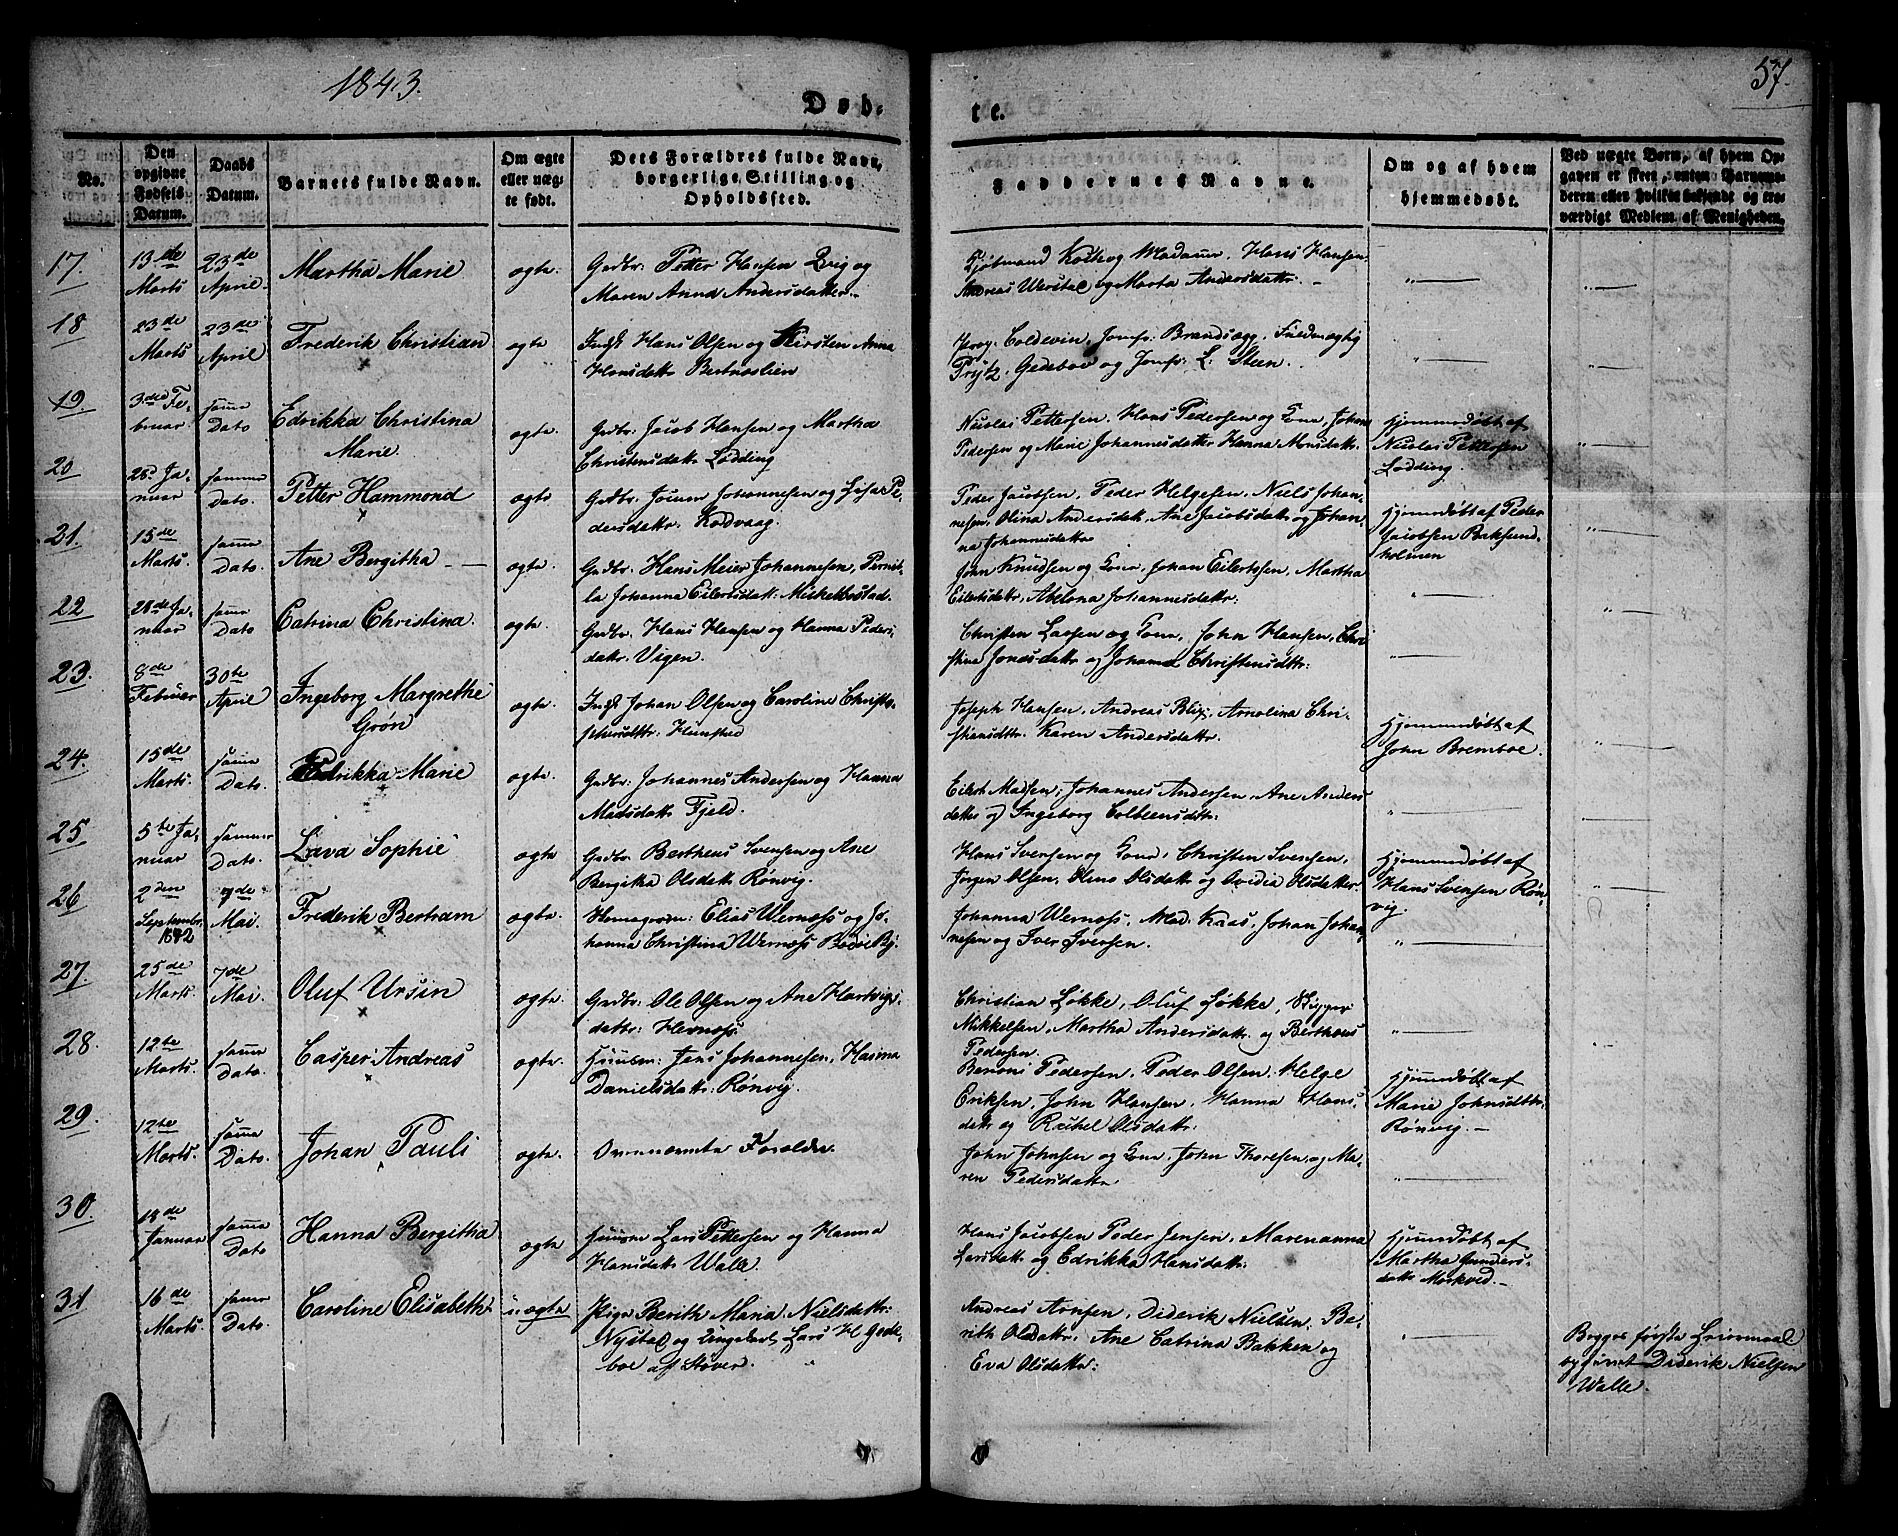 1843.
57.
Døb-
te.
No.
Den
opgivne
Fødsels
Datum.
Daabs
Datum.
Barnets fulde Navn.
Om ægte
eller uæg-
te født.
Dets Forældres fulde Navn,
borgerlige Stilling og
Opholdssted.
Faddernes Navne.
Om og af hvem
hjemmedøbt.
Ved uægte Børn, af hvem Op-
gaven er skeet, enten Barnemo-
deren eller hvilket bekjendt og tro-
værdigt Medlem af Menigheden.
17.
13de
Marts
23de
April
Martha Marie
ægte.
Gadbr. Petter Hansen og
Maren Anna Andersdatter
Kjøbmand Koch og Madame, Hans Hansen
Andreas og Marta Andersdattr.
18
23de
Marts
23de
April
Frederik Christian
ægte
Indst Hans Olsen og Kirsten Anna
Hansdattr Bertnæslien
Coldevin, Jomfr: Brandsægg, Fuldmægtig
Prytz, Gedeboe og Jomfr: L: Steen.
19
3die Fe-
bruar
samme
Dato
Edrikka Christina
Marie.
ægte.
Gadbr: Jacob Hansen og Martha
Christensdattr Lødding
Nicolai Pettersen, Hans Pedersen og Kone, Johan
Pedersen og Marie Johannesdatter Hanna Monsdattr.
Hjemmedøbt af
Nicolai Pettersen
Lødding.
20
Ja-
nuar
samme
Dato.
Petter Hammond
ægte
Gadbr: Johannesen og Pe-
dersdattr. Kodvaag.
Peder Jacobsen, Peder Helgesen, Niels Johan-
nesen, Olina Andersdatr, Ane Jacobsdattr og Johan-
na Johannesdattr
Hjemmedøbt af Peder
Jacobsen
holmen
21.
15de
Marts.
samme
Dato.
Ane Bergitha
ægte.
Gadbr: Hans Meier Johannesen, Pernil-
la Johanna Eilertsdatr:
John Knudsen og Kone, Johan Eilertsen, Martha
Eilertsdattr, Abelona Johannesdattr:
22
28de Ja-
nuar
samme
Dato
Catrina Christina.
ægte.
Gadbr: Hans Hansen og Hanna Peders-
dattr: Vigen.
Christen Larsen og Kone, John Hansen, Chri-
stina Jonasdattr og Johanna Christensdttr:
23.
8de
Februar
30te
April
Ingeborg Margrethe
Grøn
ægte.
Indst Johan Olsen og Caroline Christo-
phersdttr: Hunstad
Joseph Hansen, Andreas Blix, Arnolina Chri-
stiansdttr. Karen Andersdattr.
Hjemmedøbt af
John Bremboe.
24.
15de
Marts.
samme
Dato.
Pedrikka Marie
ægte
Gadbr: Johannes Andersen og Hanna
Madsdattr Fjeld.
Eilert Madsen, Johannes Andersen, Ane Anders
datter og Ingeborg
25
5te Ja-
nuar
samme
Dato.
Lava Sophie
ægte
Gadbr: Bertheus Svensen og Ane
Bergitha Olsdattr Rønvig.
Hans Svensen og Kone, Christen Svensen,
Jørgen Olsen, Olsdattr og Olsdatter
Hjemmedøbt af
Hans Svensen Røn-
vig.
26
2den
Septembr.
1842
7de
Mai.
Frederik Bertram
ægte.
Elias Wernøss og Jo-
hanna Christina Wernøss Bodøe By.
Johanna Wernøss, Mad: Kraas, Johan Johan-
nesen og Iver Iversen.
27.
25de
Marts.
7de
Mai.
Oluf Ursin
ægte.
Gadbr: Ole Olsen og Ane Hartvigs-
dattr: Hernøss.
Christian Løkke, Oluf Løkke,
Mikkelsen, Martha Andersdattr. og Bertheus
Pedersen.
28.
12te
Marts.
samme
Dato.
Casper Andreas
ægte.
Jens Johannesen, Hanna
Danielsdattr: Rønvig.
Benoni Pedersen, Peder Olsen, Helge
Eriksen, John Hansen, Hanna Hans-
dattr og Rachel Olsdattr.
Hjemmedøbt af
Marie Johnsdttr.
Rønvig.
29.
12te
Marts.
samme
Dato.
Johan Pauli
ægte.
Ovennævnte Forældre.
John Johnsen og Kone, John Thoresen og Ma-
ren Pedersdattr
30.
18de
Januar
samme
Dato
Hanna Bergitha
ægte
Lars Pettersen og Hanna
Hansdattr Walle.
Hans Jacobsen Peder Jensen, Marenanna
Larsdattr og Edrikka Hansdattr:
Hjemmedøbt af
Martha Gunders-
dattr Mørkved.
31
16de
Marts.
samme
Dato.
Caroline Elisabeth
uægte
Pige Berith Maria Nielsdattr:
Nystad og Ungekarl Lars H. Gede-
boe af Støver.
Andreas Arntsen, Diderik Nielsen, Be-
rith Olsdattr, Ane Catrina Bakken og
Eva Olsdattr:
Begges første Leiermaal
Diderik Nielsen
Walle.